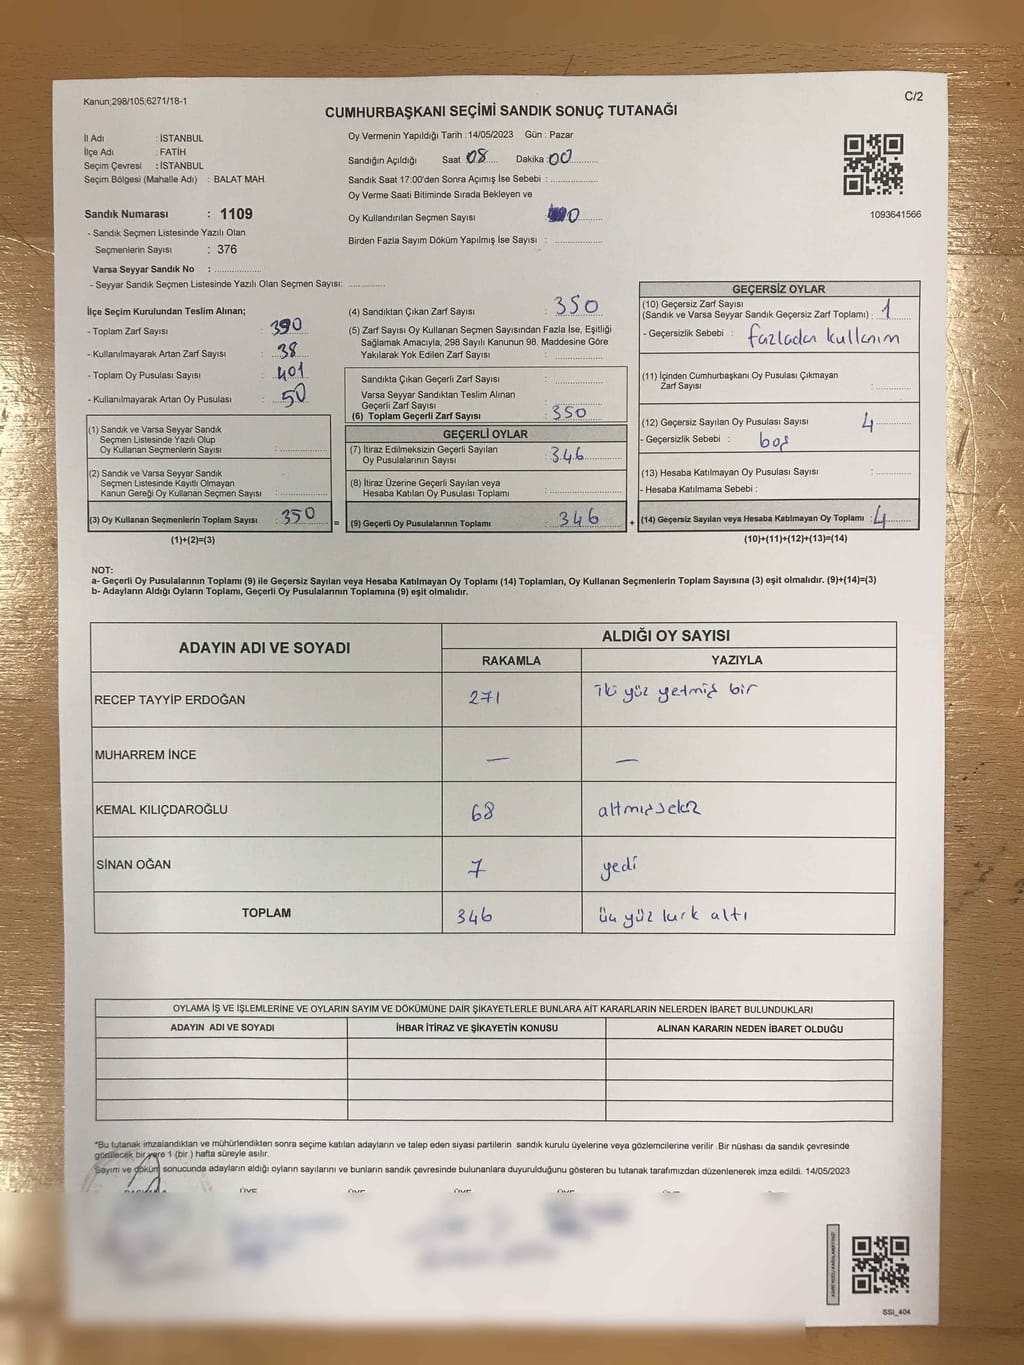 Kanun;298/105;6271/18-1
C/2
CUMHURBAŞKANI SEÇİMİ SANDIK SONUÇ TUTANAĞI
İl Adı : İSTANBUL
İlçe Adı : FATİH
Seçim Çevresi : İSTANBUL
Seçim Bölgesi (Mahalle Adı) : BALAT MAH.
Sandık Numarası : 1109
- Sandık Seçmen Listesinde Yazılı Olan
Seçmenlerin Sayısı : 376
Varsa Seyyar Sandık No : ..................
- Seyyar Sandık Seçmen Listesinde Yazılı Olan Seçmen Sayısı: .............
Oy Vermenin Yapıldığı Tarih :14/05/2023 Gün : Pazar
Sandığın Açıldığı Saat 08 Dakika 00
Sandık Saat 17:00'den Sonra Açımış İse Sebebi : ..................
Oy Verme Saati Bitiminde Sırada Bekleyen ve
Oy Kullandırılan Seçmen Sayısı : 0
Birden Fazla Sayım Döküm Yapılmış İse Sayısı : ..................
1093641566
İlçe Seçim Kurulundan Teslim Alınan;
- Toplam Zarf Sayısı : 390
- Kullanılmayarak Artan Zarf Sayısı : 38
- Toplam Oy Pusulası Sayısı : 401
- Kullanılmayarak Artan Oy Pusulası : 50
(1) Sandık ve Varsa Seyyar Sandık
Seçmen Listesinde Yazılı Olup
Oy Kullanan Seçmenlerin Sayısı :
(2) Sandık ve Varsa Seyyar Sandık
Seçmen Listesinde Kayıtlı Olmayan
Kanun Gereği Oy Kullanan Seçmen Sayısı :
(3) Oy Kullanan Seçmenlerin Toplam Sayısı : 350
(1)+(2)=(3)
=
(4) Sandıktan Çıkan Zarf Sayısı : 350
(5) Zarf Sayısı Oy Kullanan Seçmen Sayısından Fazla İse, Eşitliği
Sağlamak Amacıyla; 298 Sayılı Kanunun 98. Maddesine Göre
Yakılarak Yok Edilen Zarf Sayısı :
Sandıkta Çıkan Geçerli Zarf Sayısı :
Varsa Seyyar Sandıktan Teslim Alınan
Geçerli Zarf Sayısı :
(6) Toplam Geçerli Zarf Sayısı : 350
GEÇERLİ OYLAR
(7) İtiraz Edilmeksizin Geçerli Sayılan
Oy Pusulalarının Sayısı : 346
(8) İtiraz Üzerine Geçerli Sayılan veya
Hesaba Katılan Oy Pusulası Toplamı :
(9) Geçerli Oy Pusulalarının Toplamı : 346
+
GEÇERSİZ OYLAR
(10) Geçersiz Zarf Sayısı
(Sandık ve Varsa Seyyar Sandık Geçersiz Zarf Toplamı) : 1
- Geçersizlik Sebebi : fazladan kullanım
(11) İçinden Cumhurbaşkanı Oy Pusulası Çıkmayan
Zarf Sayısı :
(12) Geçersiz Sayılan Oy Pusulası Sayısı 4
- Geçersizlik Sebebi : boş
(13) Hesaba Katılmayan Oy Pusulası Sayısı :
- Hesaba Katılmama Sebebi :
(14) Geçersiz Sayılan veya Hesaba Katılmayan Oy Toplamı : 4
(10)+(11)+(12)+(13)=(14)
NOT:
a- Geçerli Oy Pusulalarının Toplamı (9) ile Geçersiz Sayılan veya Hesaba Katılmayan Oy Toplamı (14) Toplamları, Oy Kullanan Seçmenlerin Toplam Sayısına (3) eşit olmalıdır. (9)+(14)=(3)
b- Adayların Aldığı Oyların Toplamı, Geçerli Oy Pusulalarının Toplamına (9) eşit olmalıdır.
ADAYIN ADI VE SOYADI ALDIĞI OY SAYISI
RAKAMLA YAZIYLA
RECEP TAYYİP ERDOĞAN 271 iki yüz yetmiş bir
MUHARREM İNCE — —
KEMAL KILIÇDAROĞLU 68 altmışsekiz
SİNAN OĞAN 7 yedi
TOPLAM 346 üç yüz kırk altı
OYLAMA İŞ VE İŞLEMLERİNE VE OYLARIN SAYIM VE DÖKÜMÜNE DAİR ŞİKAYETLERLE BUNLARA AİT KARARLARIN NELERDEN İBARET BULUNDUKLARI
ADAYIN ADI VE SOYADI İHBAR İTİRAZ VE ŞİKAYETİN KONUSU ALINAN KARARIN NEDEN İBARET OLDUĞU
*Bu tutanak imzalandıktan ve mühürlendikten sonra seçime katılan adayların ve talep eden siyasi partilerin sandık kurulu üyelerine veya gözlemcilerine verilir .Bir nüshası da sandık çevresinde
görülecek bir yere 1 (bir ) hafta süreyle asılır.
Sayım ve döküm sonucunda adayların aldığı oyların sayılarını ve bunların sandık çevresinde bulunanlara duyurulduğunu gösteren bu tutanak tarafımızdan düzenlenerek imza edildi. 14/05/2023
ÜYE ÜYE ÜYE ÜYE
SSI_404